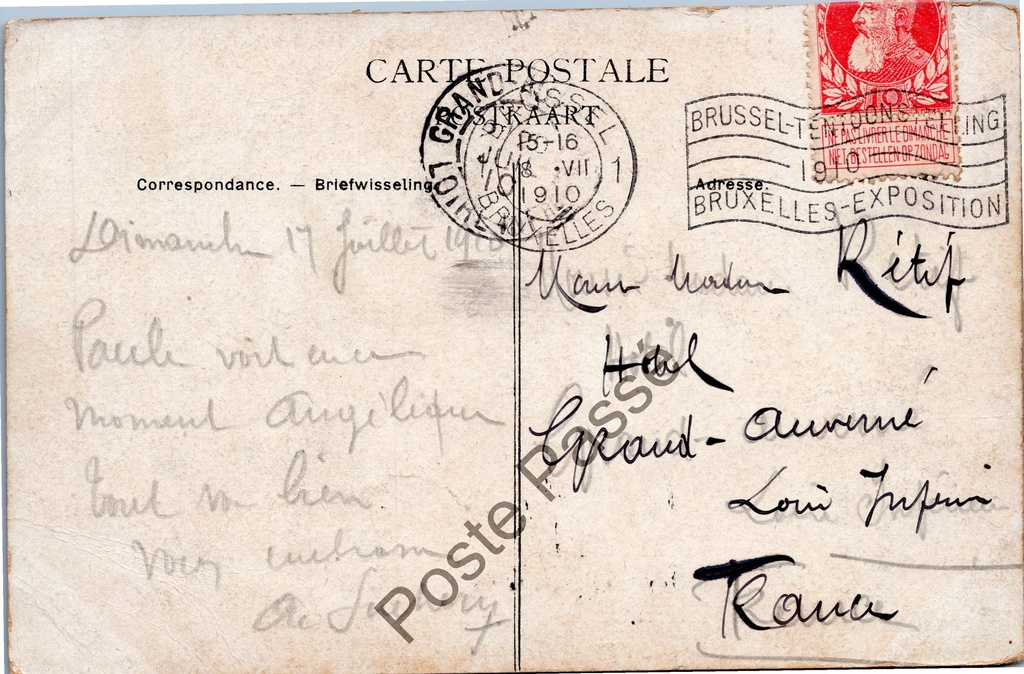 CARTE POSTALE
POSTKAART
Correspondance. — Briefwisseling.
Adresse.
BRUSSEL
15-16
8 VII
1910
1
BRUXELLES
GRAND
LOIRE
BRUSSEL-TENTOONSTELLING
1910
BRUXELLES-EXPOSITION
10
NE PAS LIVRER LE DIMANCHE
NIET BESTELLEN OP ZONDAG
Dimanche 17 Juillet 1910
voit
moment Angélique
tout va bien
vous
Rétif
Hôtel
Grand-Auverné
Loire Inférieure
France
Poste Passé